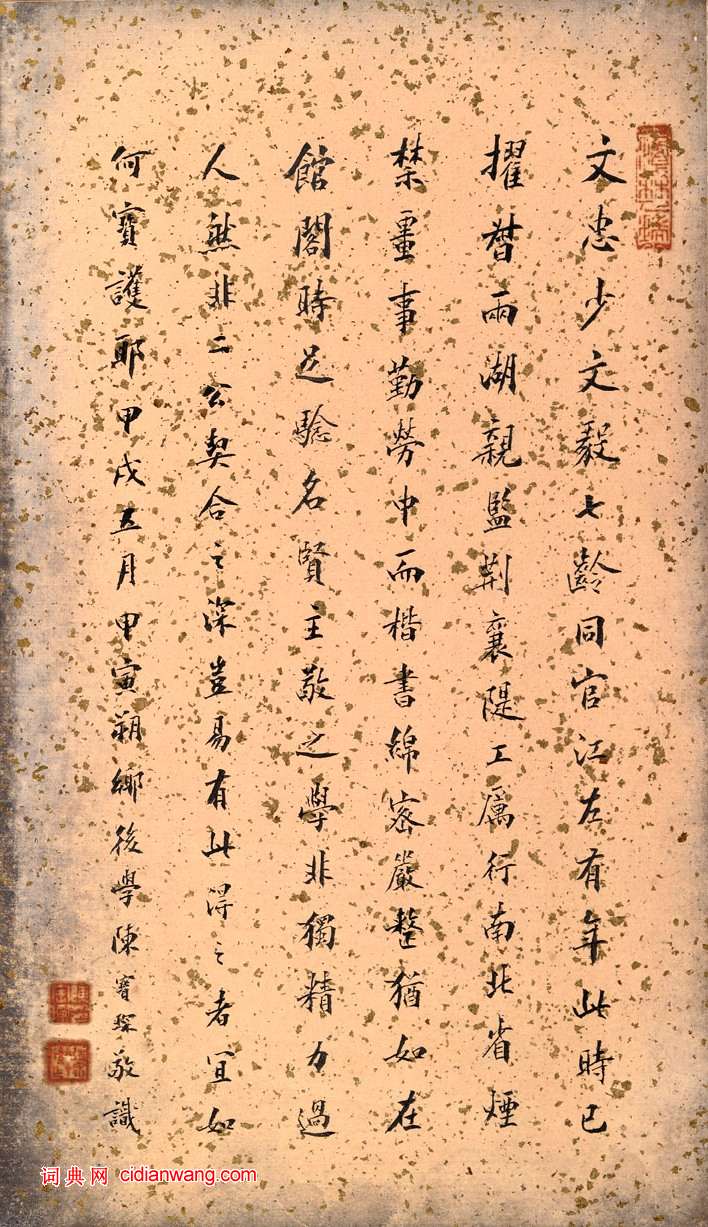 文忠少文毅七齡同官江左有年此時已
擢督兩湖親監荆襄隄工厲行南北省煙
禁畺事勤勞中而楷書綿密嚴整猶如在
館閣時足驗名賢主敬之學非獨精力過
人然非二公契合之深豈易有此得之者宜如
何寶護耶甲戌五月甲寅朔鄉後學陳寶琛敬識
词典网 cidianwang.com